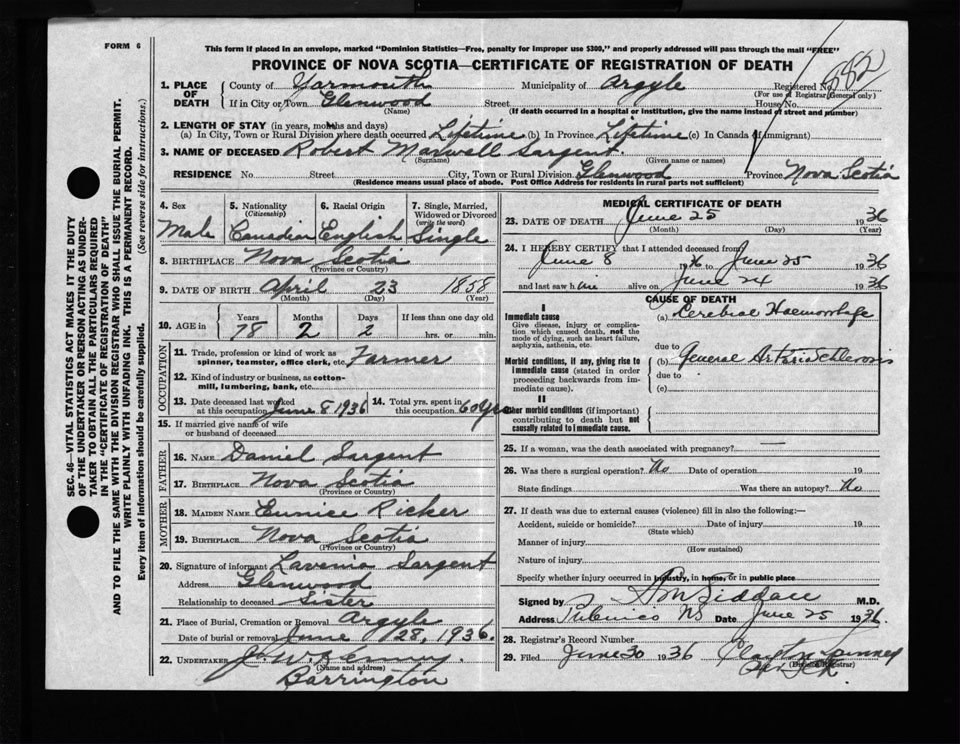 FORM 6
This form if placed in an envelope, marked "Dominion Statistics—Free, penalty for improper use $300," and properly addressed will pass through the mail "FREE"
PROVINCE OF NOVA SCOTIA—CERTIFICATE OF REGISTRATION OF DEATH
SEC. 46—VITAL STATISTICS ACT MAKES IT THE DUTY
OF THE UNDERTAKER OR PERSON ACTING AS UNDER-
TAKER TO OBTAIN ALL THE PARTICULARS REQUIRED
IN THE "CERTIFICATE OF REGISTRATION OF DEATH"
AND TO FILE THE SAME WITH THE DIVISION REGISTRAR WHO SHALL ISSUE THE BURIAL PERMIT.
WRITE PLAINLY WITH UNFADING INK. THIS IS A PERMANENT RECORD.
Every item of information should be carefully supplied. (See reverse side for instructions.)
1. PLACE OF DEATH County of Yarmouth Municipality of Argyle Registered No. 882
(For use of Registrar General only)
If in City or Town Glenwood Street House No.
(Name) (If death occurred in a hospital or institution, give the name instead of street and number)
2. LENGTH OF STAY (in years, months and days)
(a) In City, Town or Rural Division where death occurred Lifetime (b) In Province Lifetime (c) In Canada (if immigrant)
3. NAME OF DECEASED Robert Maxwell Sargent.
(Surname) (Given name or names)
RESIDENCE No. Street City, Town or Rural Division Glenwood Province Nova Scotia
(Residence means usual place of abode. Post Office Address for residents in rural parts not sufficient)
4. Sex 5. Nationality (Citizenship) 6. Racial Origin 7. Single, Married, Widowed or Divorced (write the word)
Male Canadian English Single
8. BIRTHPLACE Nova Scotia
(Province or Country)
9. DATE OF BIRTH April 23 1858
(Month) (Day) (Year)
10. AGE in Years Months Days If less than one day old
78 2 2 hrs. or min.
OCCUPATION
11. Trade, profession or kind of work as
spinner, teamster, office clerk, etc. Farmer
12. Kind of industry or business, as cotton-
mill, lumbering, bank, etc.
13. Date deceased last worked at this occupation June 8 1936 14. Total yrs. spent in this occupation 60 yrs
15. If married give name of wife
or husband of deceased
FATHER
16. NAME Daniel Sargent
17. BIRTHPLACE Nova Scotia
(Province or Country)
MOTHER
18. MAIDEN NAME Eunice Ricker
19. BIRTHPLACE Nova Scotia
(Province or Country)
20. Signature of informant Lavenia Sargent
Address Glenwood
Relationship to deceased Sister
21. Place of Burial, Cremation or Removal Argyle
Date of burial or removal June 28, 1936.
22. UNDERTAKER
(Name and address)
Barrington
MEDICAL CERTIFICATE OF DEATH
23. DATE OF DEATH June 25 1936
(Month) (Day) (Year)
24. I HEREBY CERTIFY that I attended deceased from
June 8 1936 to June 25 1936
and last saw him alive on June 24 1936
CAUSE OF DEATH
I
Immediate cause (a) Cerebral Haemorrhage
Give disease, injury or complica-
tion which caused death, not the
mode of dying, such as heart failure,
asphyxia, asthenia, etc.
due to
Morbid conditions, if any, giving rise to (b) General
immediate cause (stated in order due to
proceeding backwards from im- (c)
mediate cause).
II
Other morbid conditions (if important)
contributing to death but not
causally related to immediate cause.
25. If a woman, was the death associated with pregnancy? —
26. Was there a surgical operation? No Date of operation 19
State findings Was there an autopsy? No
27. If death was due to external causes (violence) fill in also the following:—
Accident, suicide or homicide? Date of injury 19
(State which)
Manner of injury
(How sustained)
Nature of injury
Specify whether injury occurred in industry, in home, or in public place
Signed by Siddall M.D.
Address Pubnico NS Date June 25 1936.
28. Registrar's Record Number
29. Filed June 30 1936
(Division Registrar)